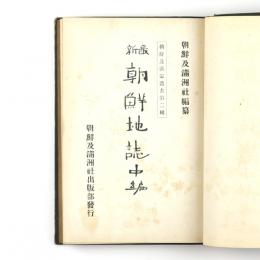 朝鮮及満洲社編纂
朝鮮及満洲叢書第二輯
最新
朝鮮地誌中編
朝鮮及満洲社出版部發行